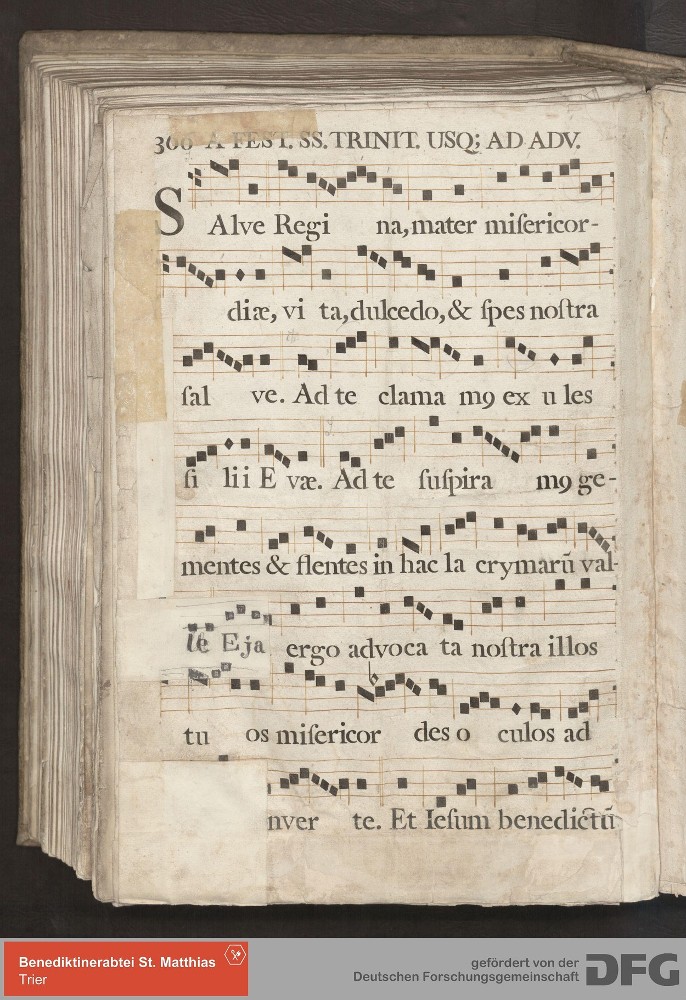 300 A FEST. SS. TRINIT. USQ; AD ADV.
SAlve Regi na, mater miſericor-
diæ, vi ta, dulcedo, & ſpes noſtra
ſal ve. Ad te clama mꝯ ex u les
fi lii E væ. Ad te ſuſpira mꝯ ge-
mentes & flentes in hac la crymarū val-
le Eja ergo advoca ta noſtra illos
tu os miſericor des o culos ad
nver te. Et Ieſum benedictū
Benediktinerabtei St. Matthias
Trier
gefördert von der
Deutschen Forschungsgemeinschaft
DFG